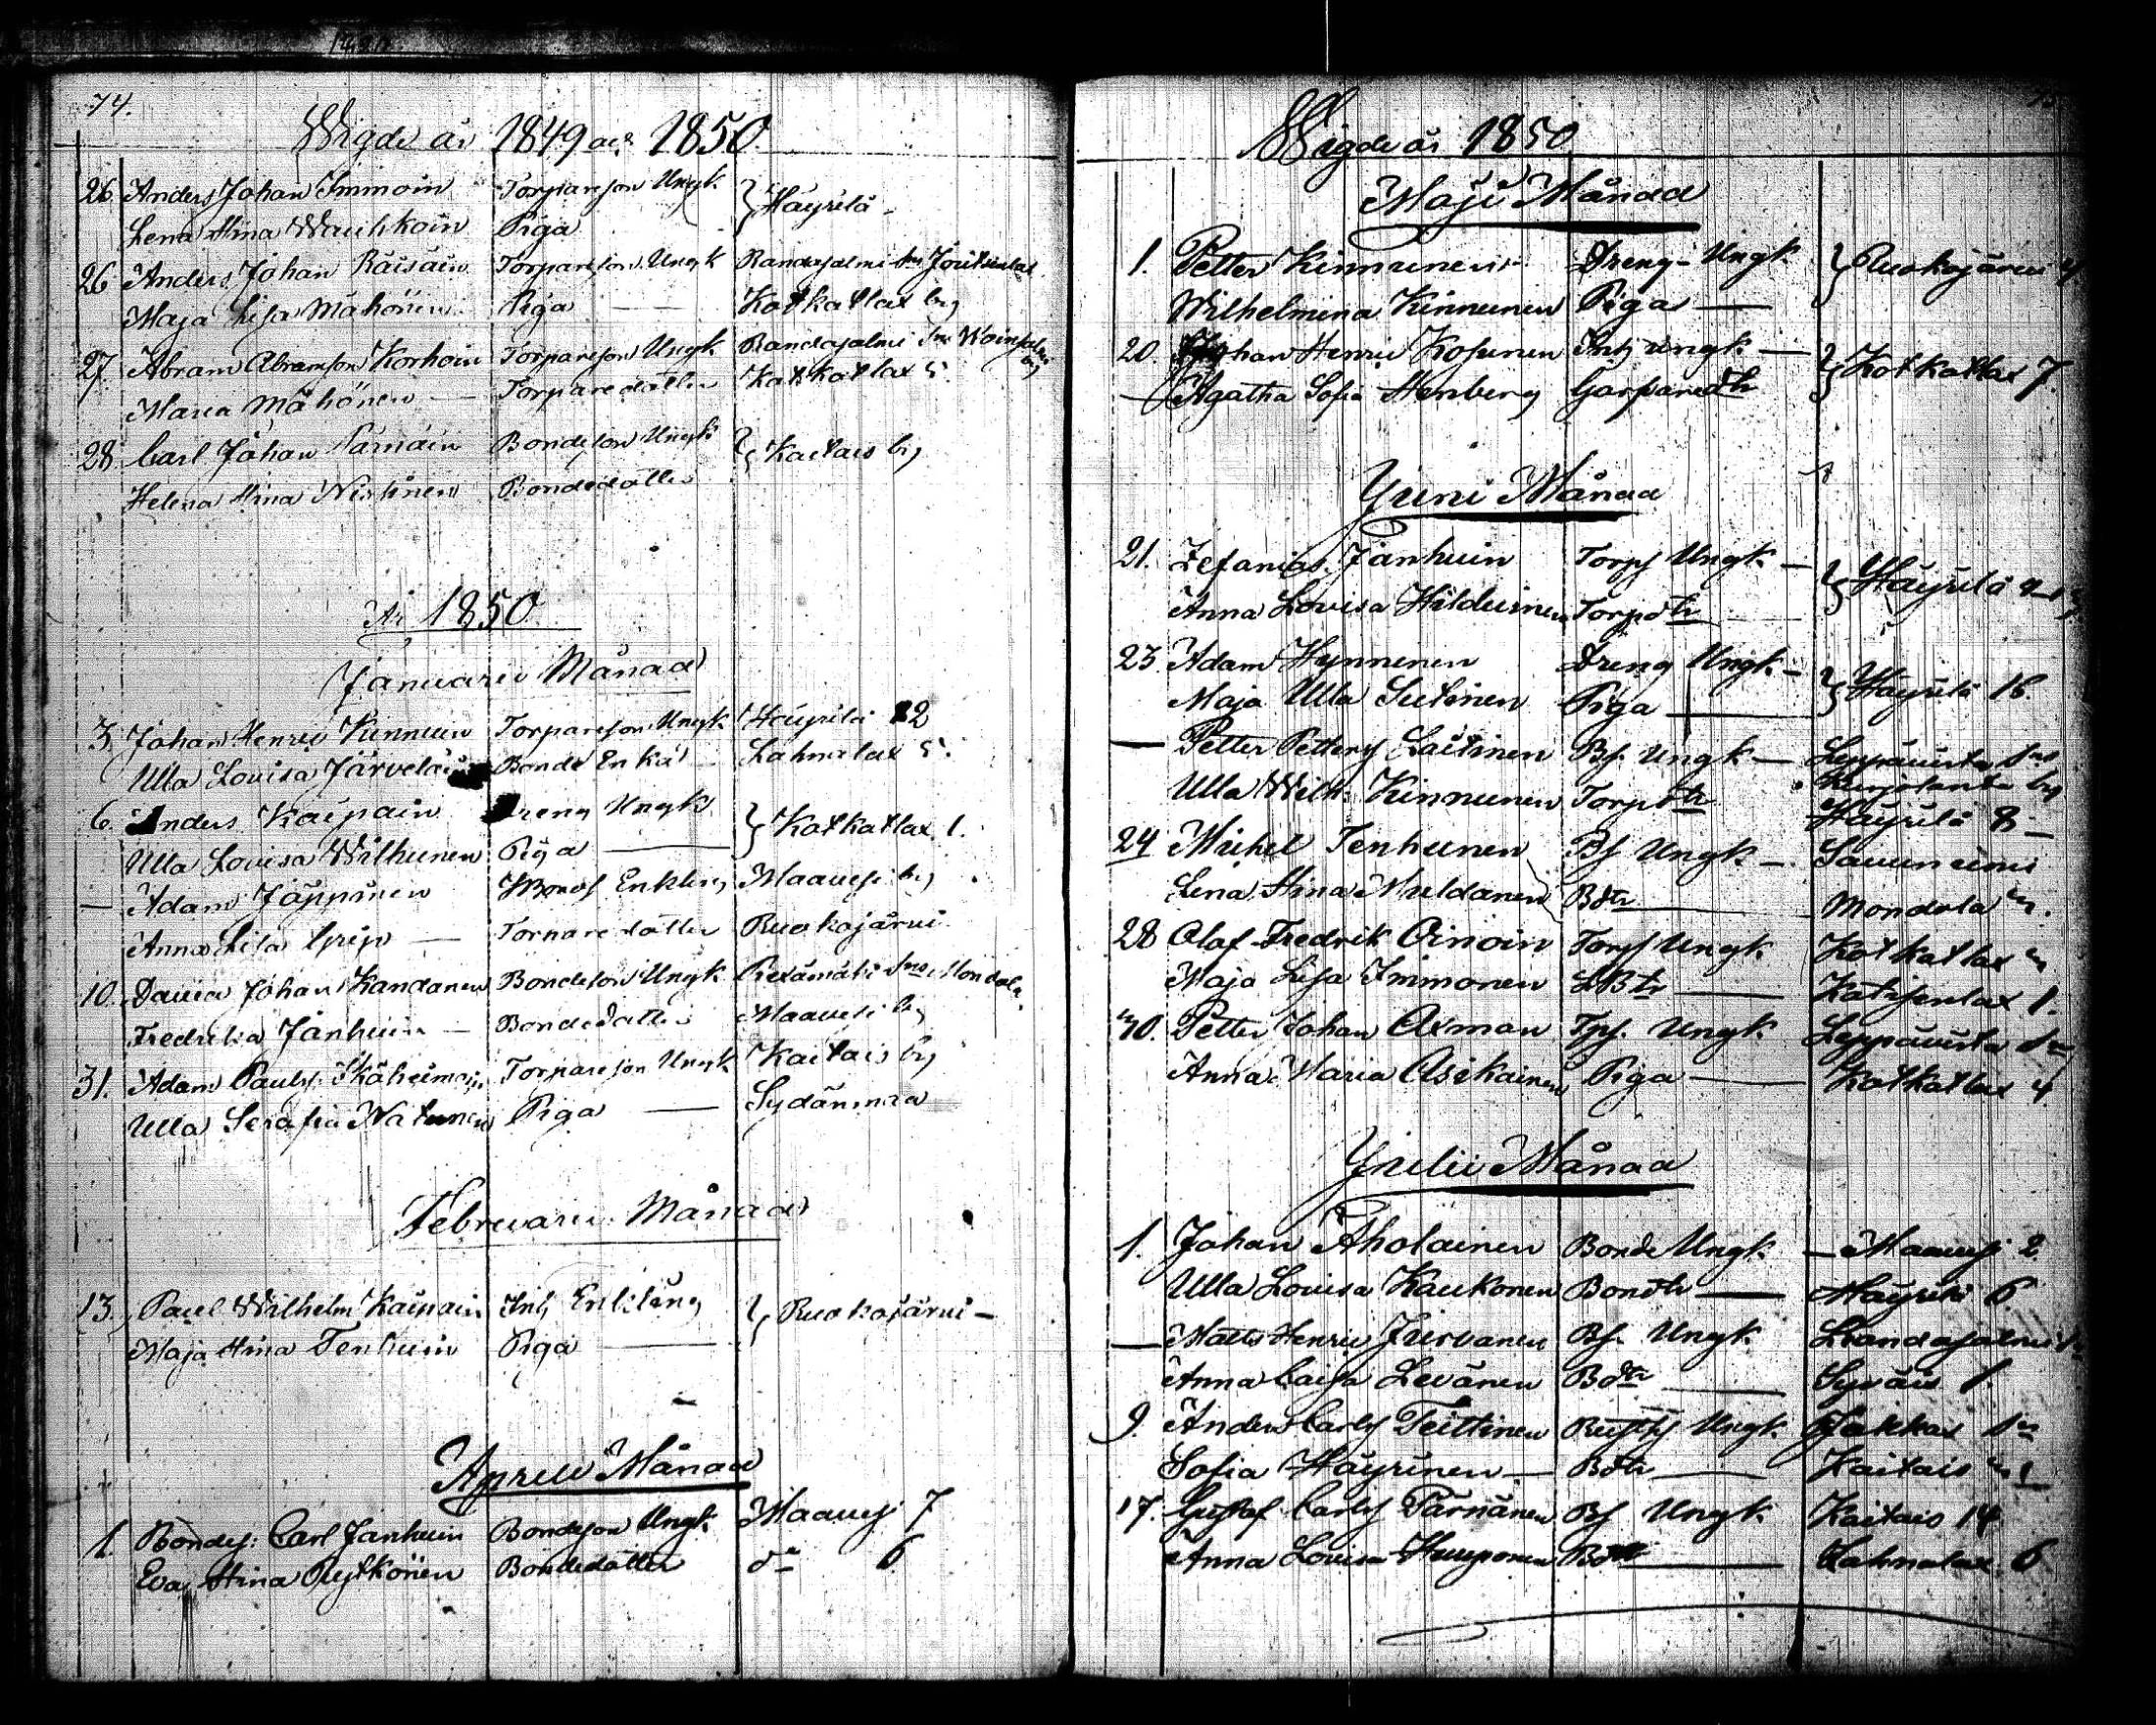 74.
Wigde år 1849 och 1850.
26. Anders Johan Immoin Torpareson Ungk. } Häyrilä
Lena Stina Wauhkoin Piga
26 Anders Johan Räisäin Torpareson Ungk Randasalmi Sn
Maja Lisa Mähöinen Piga — Kotkatlax by
27. Abram Abramsson Korhoin Torpareson Ungk Randasalmi Sn
Maria Mähönen — Torparedotter Kotkatlax 5.
28 Carl Johan Parnäin Bondeson Ungk } Kaitais by
Helena Stina Niskinen Bondedotter
År 1850.
Januarii Månad
3. Johan Henric Kinnuin Torpareson Ungk Häyrilä 2
Ulla Lovisa Bonde Enka Lahnalax 5.
6. Anders Kaipain Dreng Ungk } Kotkatlax 1.
Ulla Lovisa Wilhunen Piga —
— Adam Jäppinen Enkling Maavesi by
Anna Lisa Grip — Torparedotter Ruokojärvi
10. David Johan Kandanen Bondeson Ungk Sn Mondola
Fredrika Janhuin — Bondedotter Maavesi by
31. Adam Paulss. Torpareson Ungk Kaitais by
Ulla Serafia Natunen Piga — Sydänmaa
Februarii Månad
13. Paul Wilhelm Kaipain Inh Enkling } Ruokojärvi —
Maja Stina Tenhuin Piga —
Aprill Månad
1. Bondes: Carl Janhuin Bondeson Ungk. Maavesi 7
Eva Stina Pytkönen Bondedotter do 6.
Wigde år 1850
Maji Månad
1. Petter Kinnunen Dreng Ungk } Ruokojärvi 4
Wilhelmina Kinnunen Piga —
20. Johan Henric Kosunen Inh Ungk — } Kotkatlax 7.
— Agatha Sofia Stenberg
Juni Månad
21. Zefanias Janhuin Torps Ungk — } Häyrilä
Anna Lovisa Hilduinen Torpdtr
23. Adam Hynnenen Dreng Ungk — } Häyrilä 16.
Maja Ulla Sutinen Piga —
— Petter Petterss Laitinen Bs. Ungk — Leppävirta Sn
Ulla Wilh. Kinnunen Torpdtr Kurjolanta by
Häyrilä 8 —
24 Michel Tenhunen Bs Ungk — Savuniemi
Lena Stina Muldanen Bdtr — Mondola
28 Olof Fredrik Oinoin Torps Ungk Kotkatlax
Maja Lisa Immonen — Kotisenlax 1.
30. Petter Johan Axman Tps. Ungk. Leppävirta Sn
Anna Maria Asikainen Piga — Kotkatlax 4
Julii Månad
1. Johan Aholainen Bonde Ungk — Maavesi 2
Ulla Lovisa Kaukonen Bondtr — Häyrilä 6.
— Matts Henric Jurvanen Bs. Ungk. Randasalmi Sn
Anna Caisa Levänen Bdtr — Syväis 1.
9. Anders Carlss Teittinen Ungk Jokkas Sn
Sofia Häyrinen — Bdtr — Kaitais 1
17. Gustaf Carlss Parnänen Bs Ungk Kaitais 14
Anna Lovisa Huuponen Bdtr — Lahnalax 6.